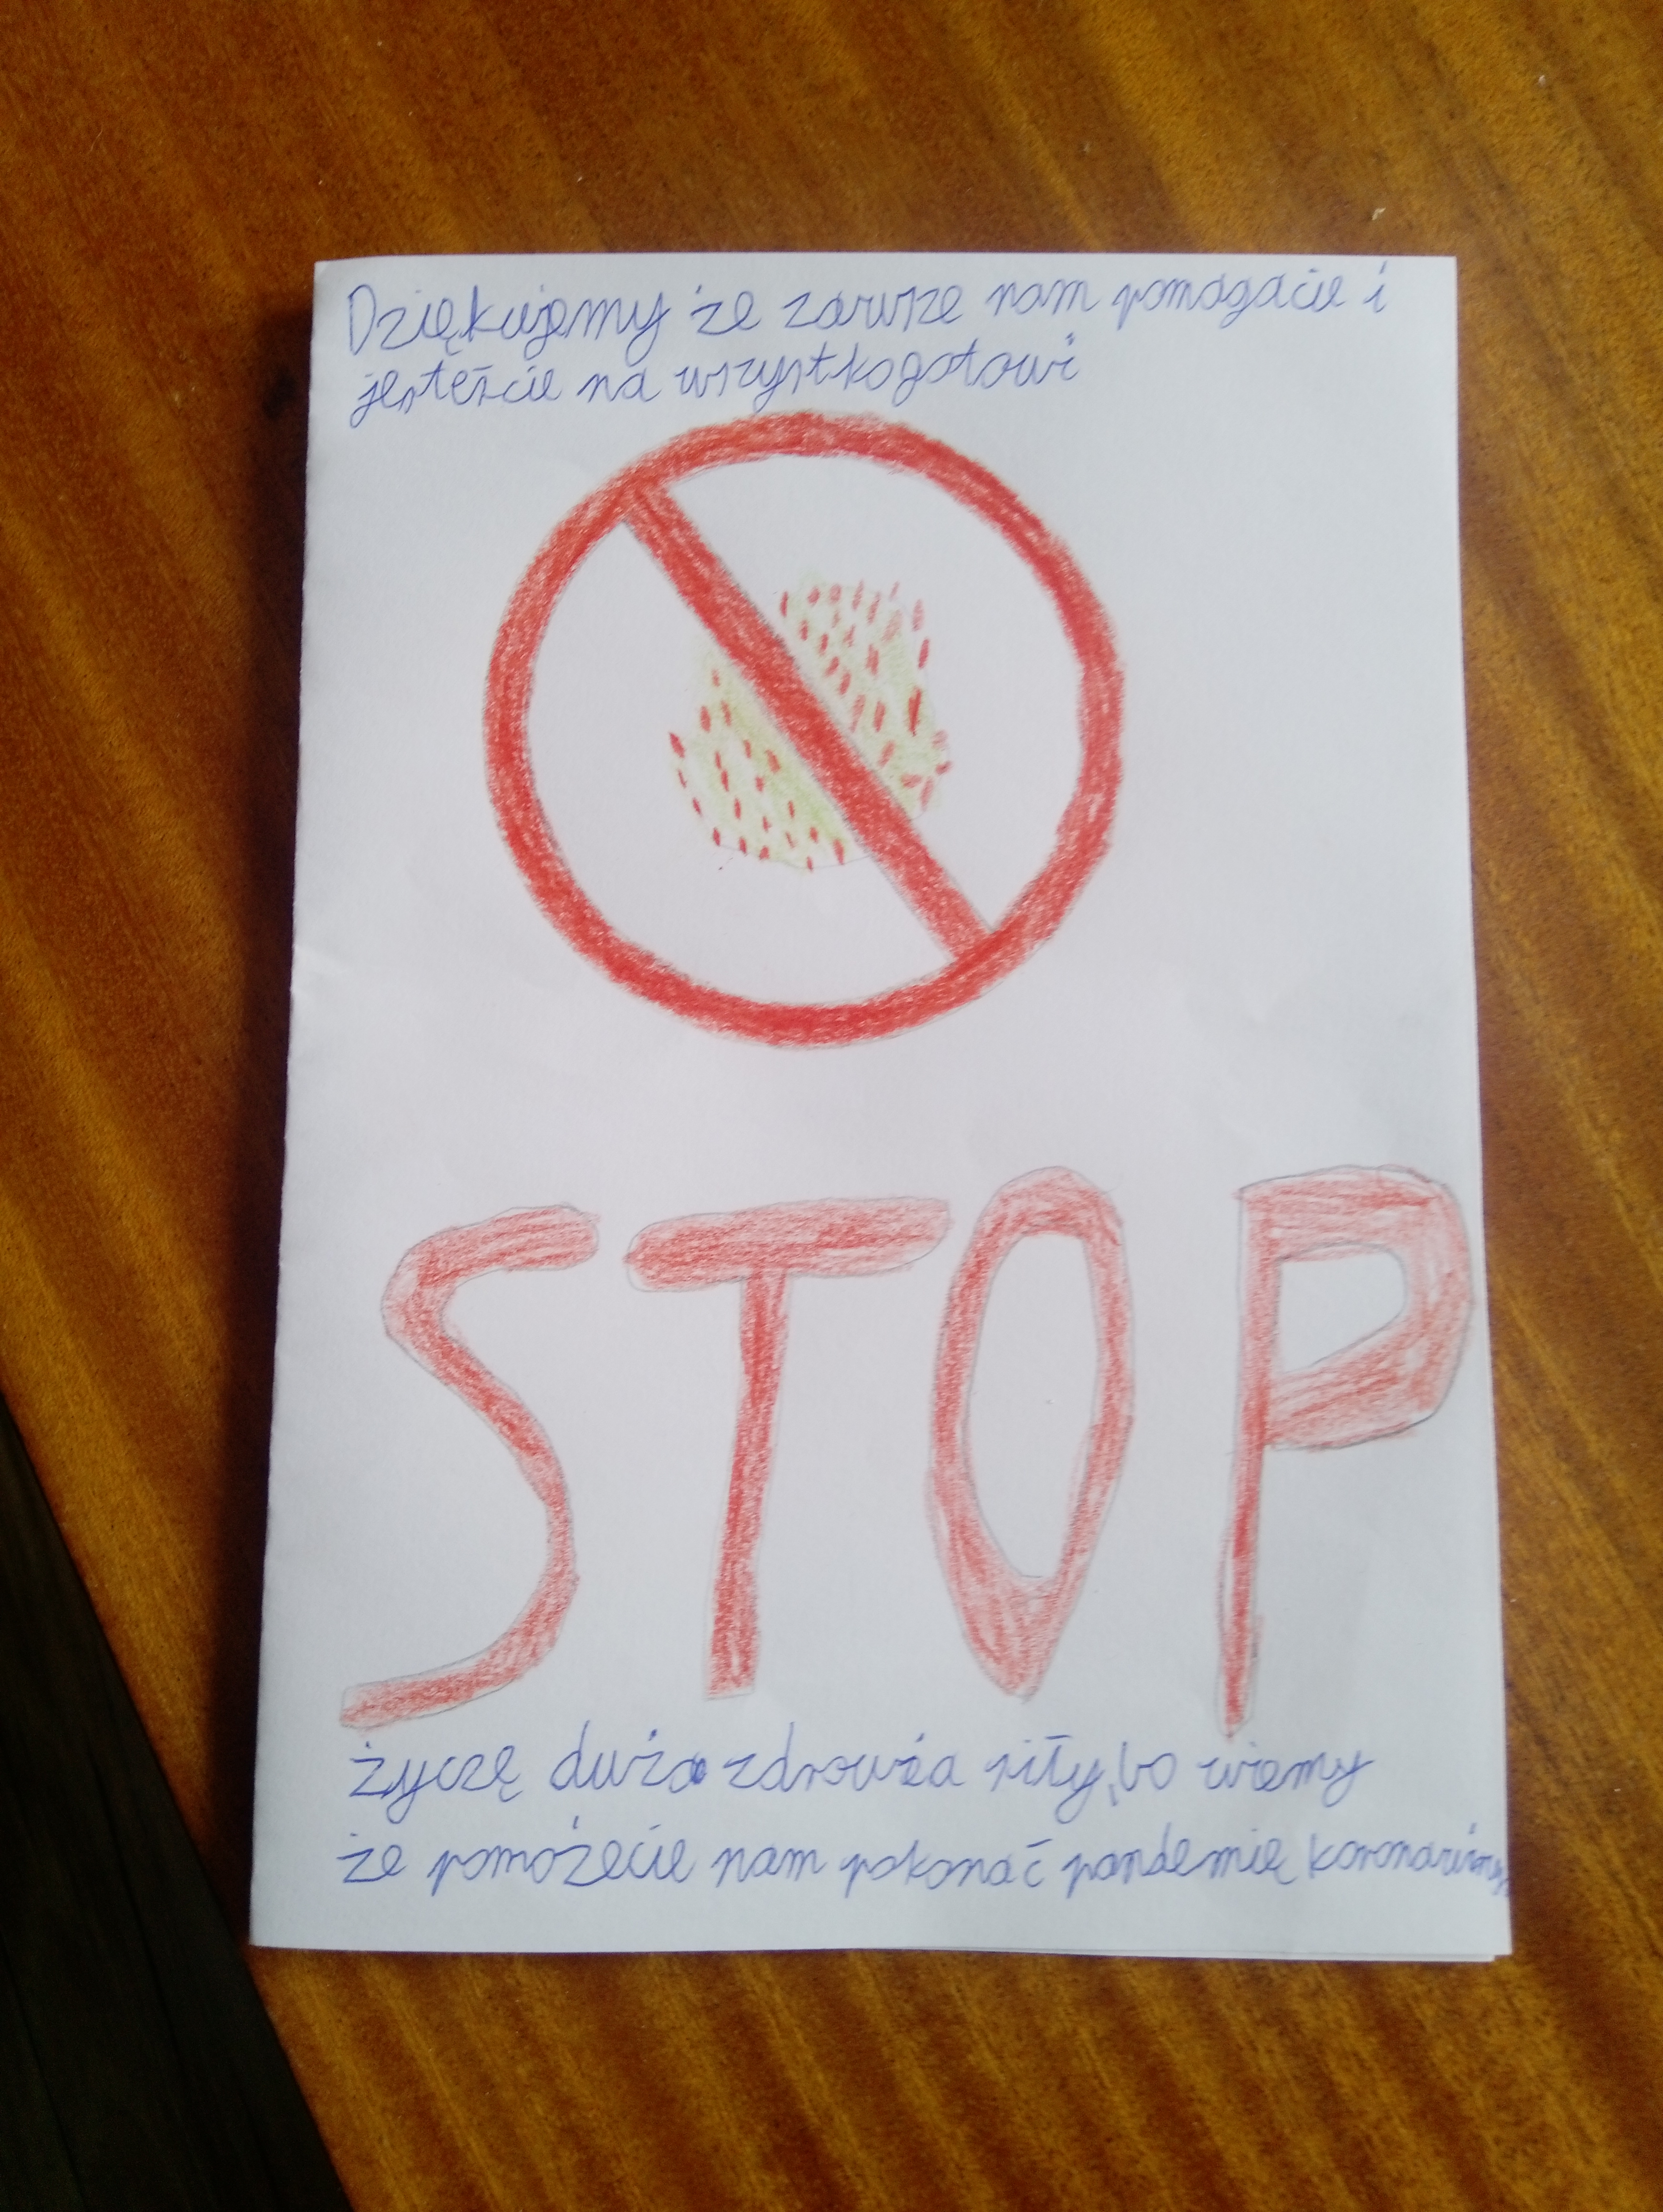 Dziękujemy że zawsze nam pomagacie i
jesteście na wszystko gotowi
STOP
życzę dużo zdrowia siły, bo wiemy
że pomożecie nam pokonać pandemię